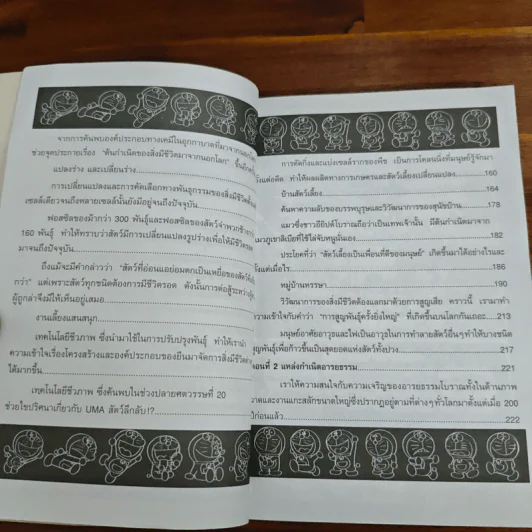 จากการค้นพบองค์ประกอบทางเคมีในอุกกาบาตที่มาจากนอกโลก
ช่วยจุดประกายเรื่อง "ต้นกำเนิดของสิ่งมีชีวิตมาจากนอกโลก" ขึ้นอีกครั้ง
แปลงร่าง และเปลี่ยนร่าง
การเปลี่ยนแปลงและการคัดเลือกทางพันธุกรรมของสิ่งมีชีวิต
เซลล์เดียวจนถึงหลายเซลล์นั้นยังมีอยู่จนถึงปัจจุบัน
ฟอสซิลของม้ากว่า 300 พันธุ์และฟอสซิลของสัตว์จำพวกช้าง
160 พันธุ์ ทำให้ทราบว่าสัตว์มีการเปลี่ยนแปลงรูปร่างเพื่อให้มีชีวิตรอด
มาจนถึงปัจจุบัน
ถึงแม้จะมีคำกล่าวว่า "สัตว์ที่อ่อนแอย่อมตกเป็นเหยื่อของสัตว์ที่
กว่า" แต่เพราะสัตว์ทุกชนิดต้องการมีชีวิตรอด ดังนั้นการต่อสู้ระหว่าง
ผู้ถูกล่าจึงมีให้เห็นอยู่เสมอ
งานเลี้ยงแสนสนุก
เทคโนโลยีชีวภาพ ซึ่งนำมาใช้ในการปรับปรุงพันธุ์ ทำให้เรานำ
ความเข้าใจเรื่องโครงสร้างและองค์ประกอบของยีนมาจัดการสิ่งมีชีวิต
ได้มากขึ้น
เทคโนโลยีชีวภาพ ซึ่งค้นพบในช่วงปลายศตวรรษที่ 20
ช่วยไขปริศนาเกี่ยวกับ UMA สัตว์ลึกลับ!?
การตัดกิ่งและแบ่งเซลล์รากของพืช เป็นการโคลนนิ่งที่มนุษย์รู้จักมา
ตั้งแต่อดีต ทำให้ผลผลิตทางการเกษตรและสัตว์เลี้ยงเปลี่ยนแปลง 160
บ้านสัตว์เลี้ยง 164
ค้นหาความลับของบรรพบุรุษและวิวัฒนาการของสุนัขบ้าน 178
แมวซึ่งชาวอียิปต์โบราณถือว่าเป็นเทพเจ้านั้น มีต้นกำเนิดมาจาก
แมวภูเขาลิเบียที่ใช้ไล่จับหนูนั่นเอง 182
ประโยคที่ว่า "สัตว์เลี้ยงเป็นเพื่อนที่ดีของมนุษย์" เกิดขึ้นมาได้อย่างไรและ
ตั้งแต่เมื่อไร 186
หมู่บ้านหรรษา 190
วิวัฒนาการของสิ่งมีชีวิตต้องแลกมาด้วยการสูญเสีย คราวนี้ เรามาทำ
ความเข้าใจกับคำว่า "การสูญพันธุ์ครั้งยิ่งใหญ่" ที่เกิดขึ้นบนโลกกันเถอะ 213
มนุษย์อาศัยอาวุธและไฟเป็นอาวุธในการทำลายสัตว์อื่นๆ ทำให้บางชนิด
สูญพันธุ์เพื่อก้าวขึ้นเป็นสุดยอดแห่งสัตว์ทั้งปวง 217
ตอนที่ 2 แหล่งกำเนิดอารยธรรม 221
เราให้ความสนใจกับความเจริญของอารยธรรมโบราณทั้งในด้านภาพ
วาดและงานแกะสลักขนาดใหญ่ซึ่งปรากฏอยู่ตามที่ต่างๆ ทั่วโลกมาตั้งแต่เมื่อ 200
ปีก่อนแล้ว 222